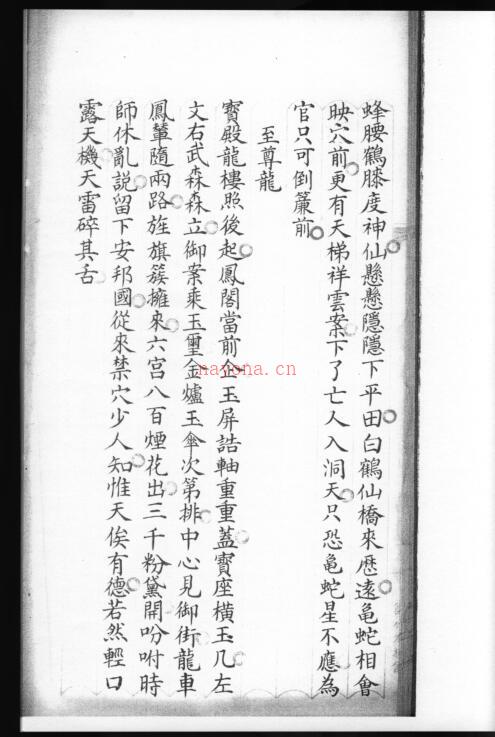 蜂腰鶴膝度神仙懸懸隱隱下平田白鶴仙橋來歷遠龜蛇相會
映穴前更有天梯祥雲案下了亡人入洞天只恐龜蛇星不應為
官只可倒簾前
至尊龍
寶殿龍樓照後起鳳閣當前企玉屏誥軸重重蓋寶座橫玉几左
文右武森森立御案乘玉璽金爐玉傘次第排中心見御街龍車
鳳輦隨兩路旌旗簇擁來六宫八百煙花出三千粉黛開吩咐時
師休亂説留下安邦國從來禁穴少人知惟天俟有德若然輕口
露天機天雷碎其舌
nayona.cn